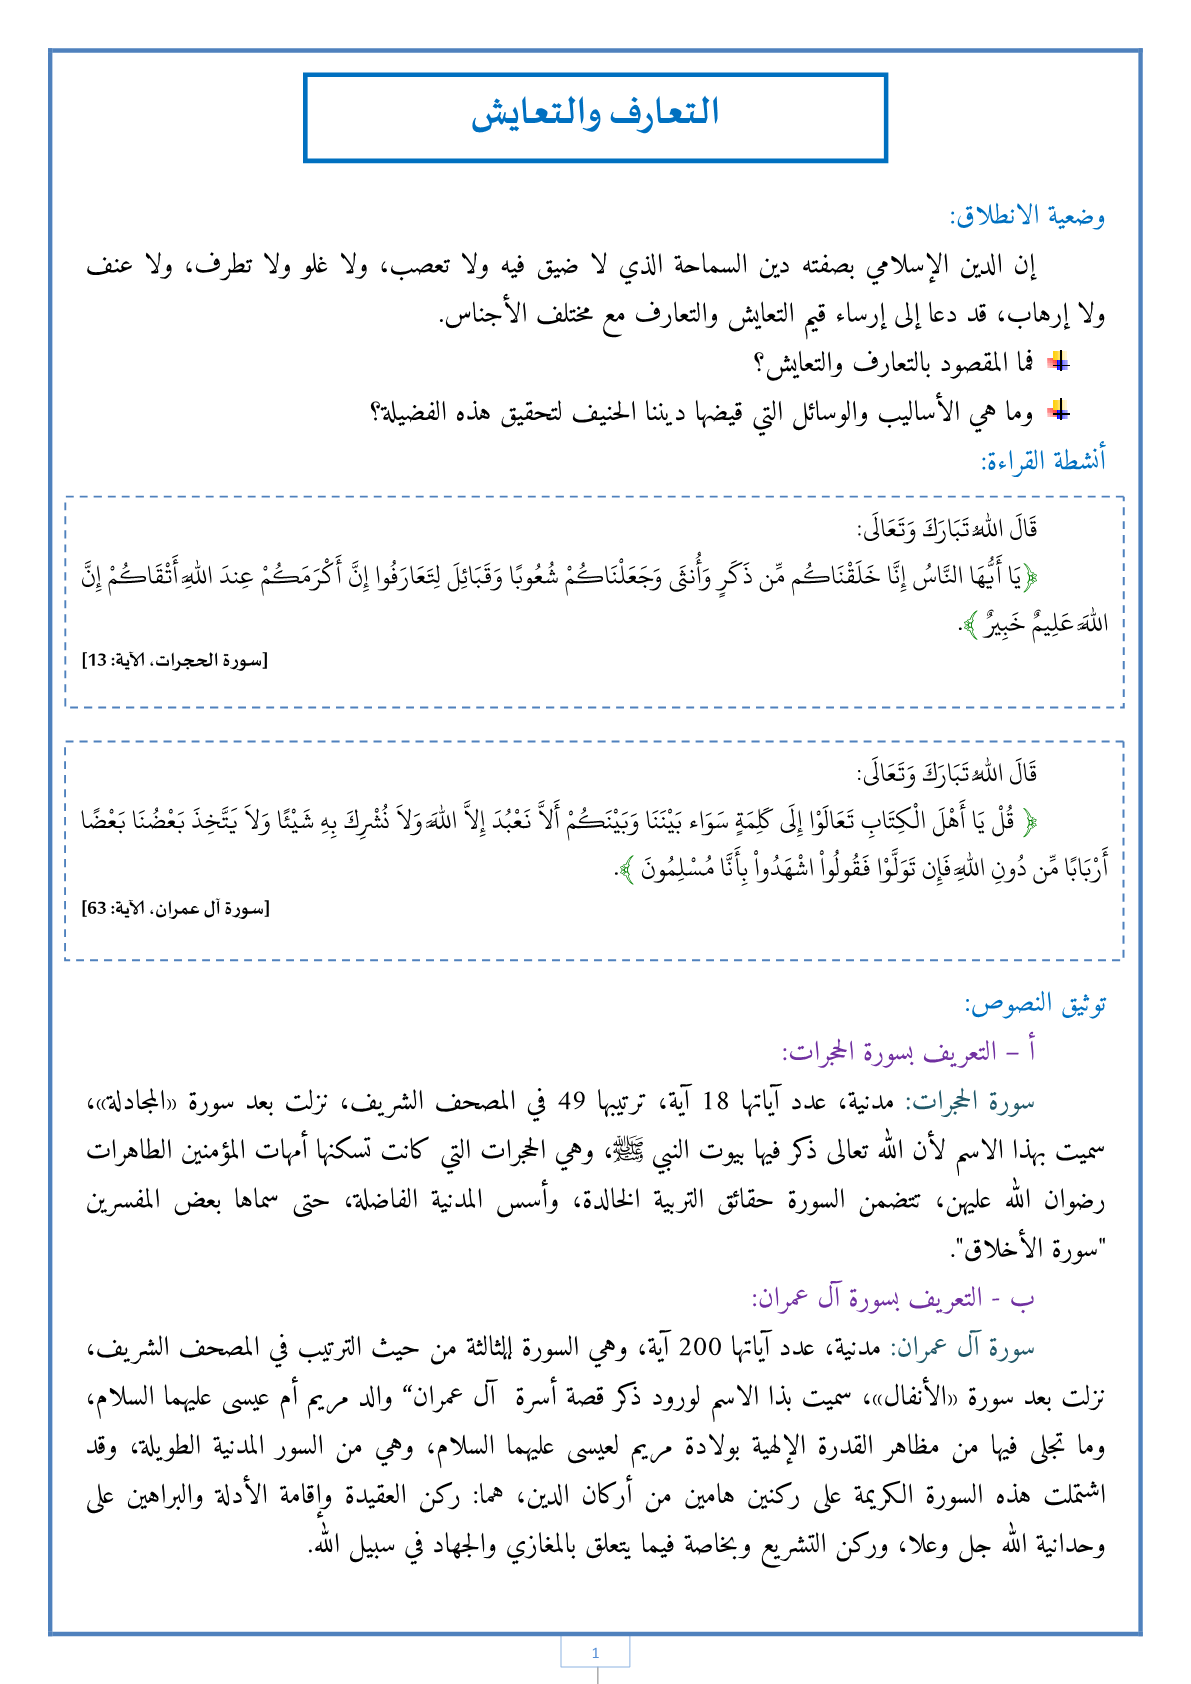 التعارف والتعايش
وضعية الانطلاق:
إن الدين الإسلامي بصفته دين السماحة الذي لا ضيق فيه ولا تعصب، ولا غلو ولا تطرف، ولا عنف
ولا إرهاب، قد دعا إلى إرساء قيم التعايش والتعارف مع مختلف الأجناس.
فما المقصود بالتعارف والتعايش؟
وما هي الأساليب والوسائل التي قيضها ديننا الحنيف لتحقيق هذه الفضيلة؟
أنشطة القراءة:
قَالَ اللهُ تَبَارَكَ وَتَعَالَى:
﴿يَا أَيُّهَا النَّاسُ إِنَّا خَلَقْنَاكُم مِّن ذَكَرٍ وَأُنثَى وَجَعَلْنَاكُمْ شُعُوبًا وَقَبَائِلَ لِتَعَارَفُوا إِنَّ أَكْرَمَكُمْ عِندَ اللهِ أَتْقَاكُمْ إِنَّ
اللهَ عَلِيمٌ خَبِيرٌ ﴾.
[سورة الحجرات، الآية: 13]
قَالَ اللهُ تَبَارَكَ وَتَعَالَى:
﴿ قُلْ يَا أَهْلَ الْكِتَابِ تَعَالَوْا إِلَى كَلِمَةٍ سَوَاء بَيْنَنَا وَبَيْنَكُمْ أَلاَّ نَعْبُدَ إِلاَّ اللهَ وَلاَ نُشْرِكَ بِهِ شَيْئًا وَلاَ يَتَّخِذَ بَعْضُنَا بَعْضًا
أَرْبَابًا مِّن دُونِ اللهِ فَإِن تَوَلَّوْا فَقُولُواْ اشْهَدُواْ بِأَنَّا مُسْلِمُونَ ﴾.
[سورة آل عمران، الآية: 63]
توثيق النصوص:
أ – التعريف بسورة الحجرات:
سورة الحجرات: مدنية، عدد آياتها 18 آية، ترتيبها 49 في المصحف الشريف، نزلت بعد سورة «المجادلة»،
سميت بهذا الاسم لأن الله تعالى ذكر فيها بيوت النبي ﷺ، وهي الحجرات التي كانت تسكنها أمهات المؤمنين الطاهرات
رضوان الله عليهن، تتضمن السورة حقائق التربية الخالدة، وأسس المدنية الفاضلة، حتى سماها بعض المفسرين
"سورة الأخلاق".
ب - التعريف بسورة آل عمران:
سورة آل عمران: مدنية، عدد آياتها 200 آية، وهي السورة الثالثة من حيث الترتيب في المصحف الشريف،
نزلت بعد سورة «الأنفال»، سميت بذا الاسم لورود ذكر قصة أسرة آل عمران“ والد مريم أم عيسى عليهما السلام،
وما تجلى فيها من مظاهر القدرة الإلهية بولادة مريم لعيسى عليهما السلام، وهي من السور المدنية الطويلة، وقد
اشتملت هذه السورة الكريمة على ركنين هامين من أركان الدين، هما: ركن العقيدة وإقامة الأدلة والبراهين على
وحدانية الله جل وعلا، وركن التشريع وبخاصة فيما يتعلق بالمغازي والجهاد في سبيل الله.
1